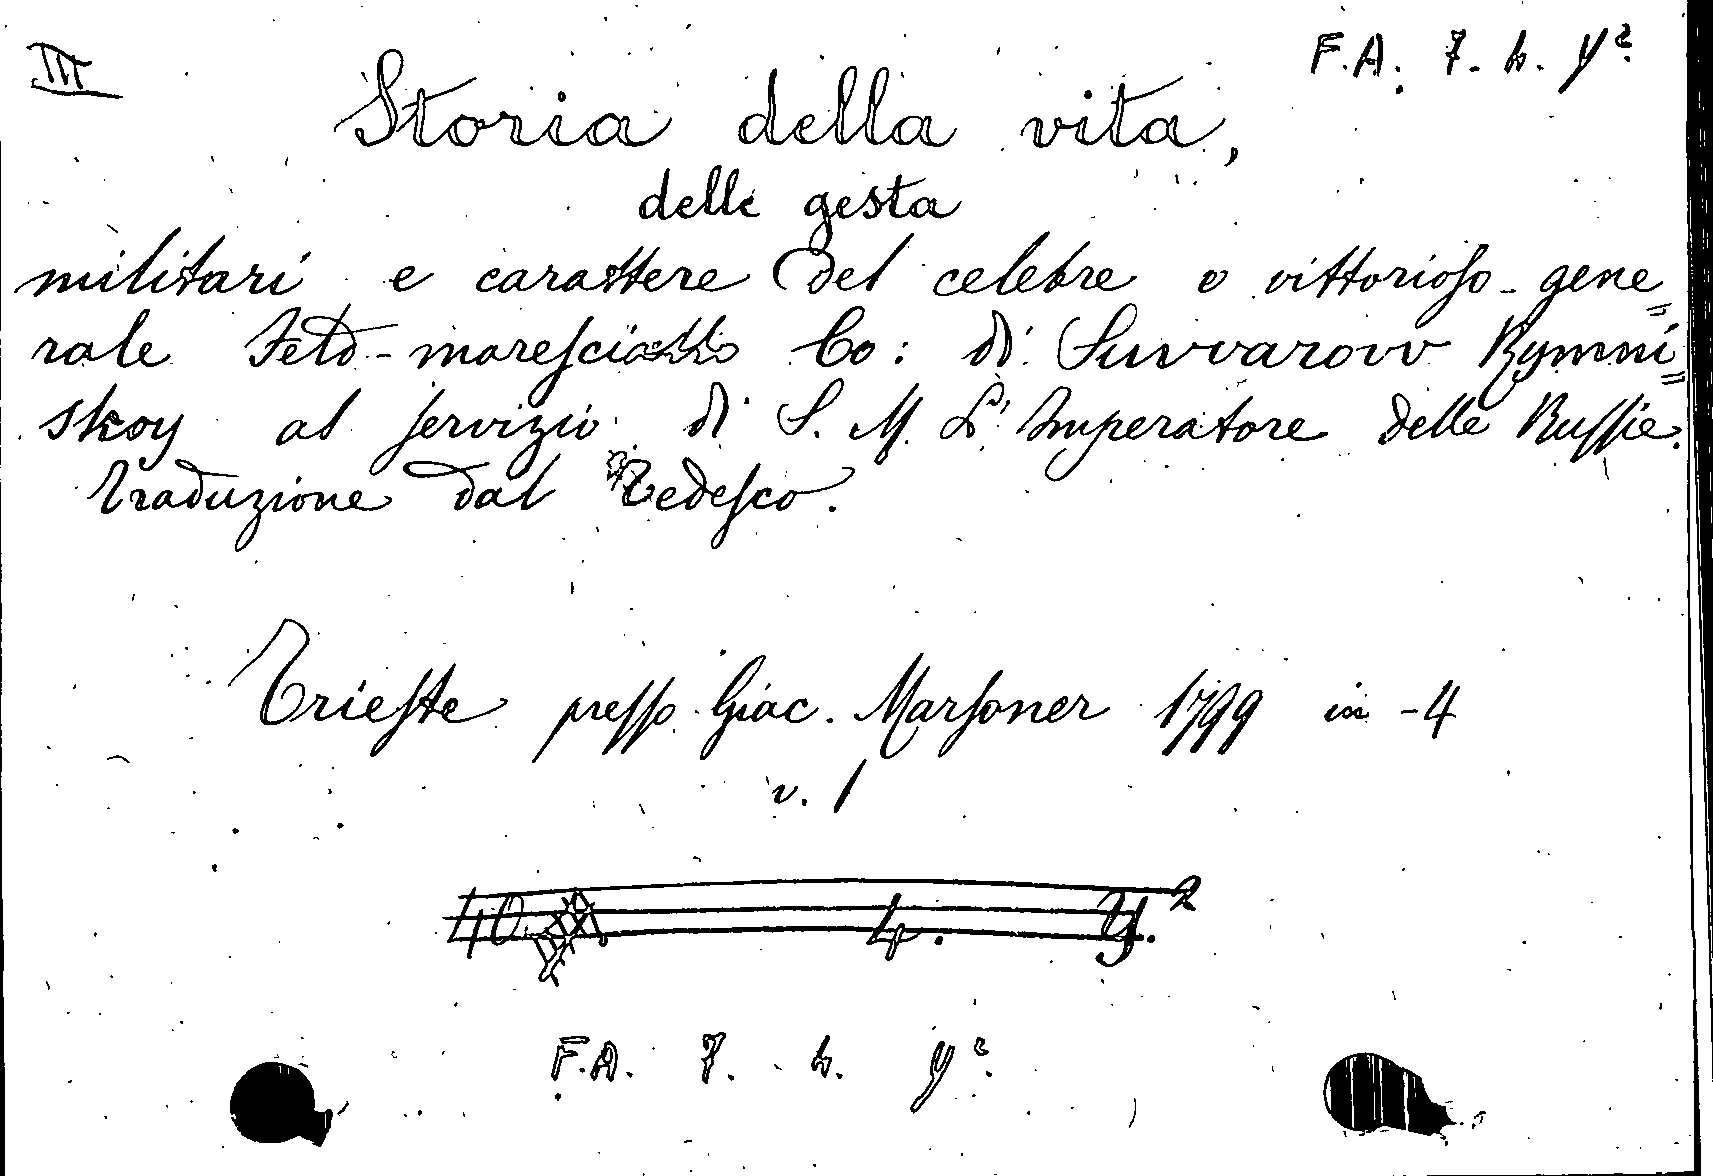 III
F.A. 7. h. y²
Storia della vita,
delle gesta
militari e carattere del celebre e vittorioso-gene=
rale Feld-maresciallo Co: di Suvvarovv Rymni=
skoy al servizio di S. M. L'Imperatore delle Russie.
Traduzione dal Tedesco.
Trieste presso Giac. Marsoner 1799 in -4
v. 1
40. 4. y.²
F.A. 7. h. y².